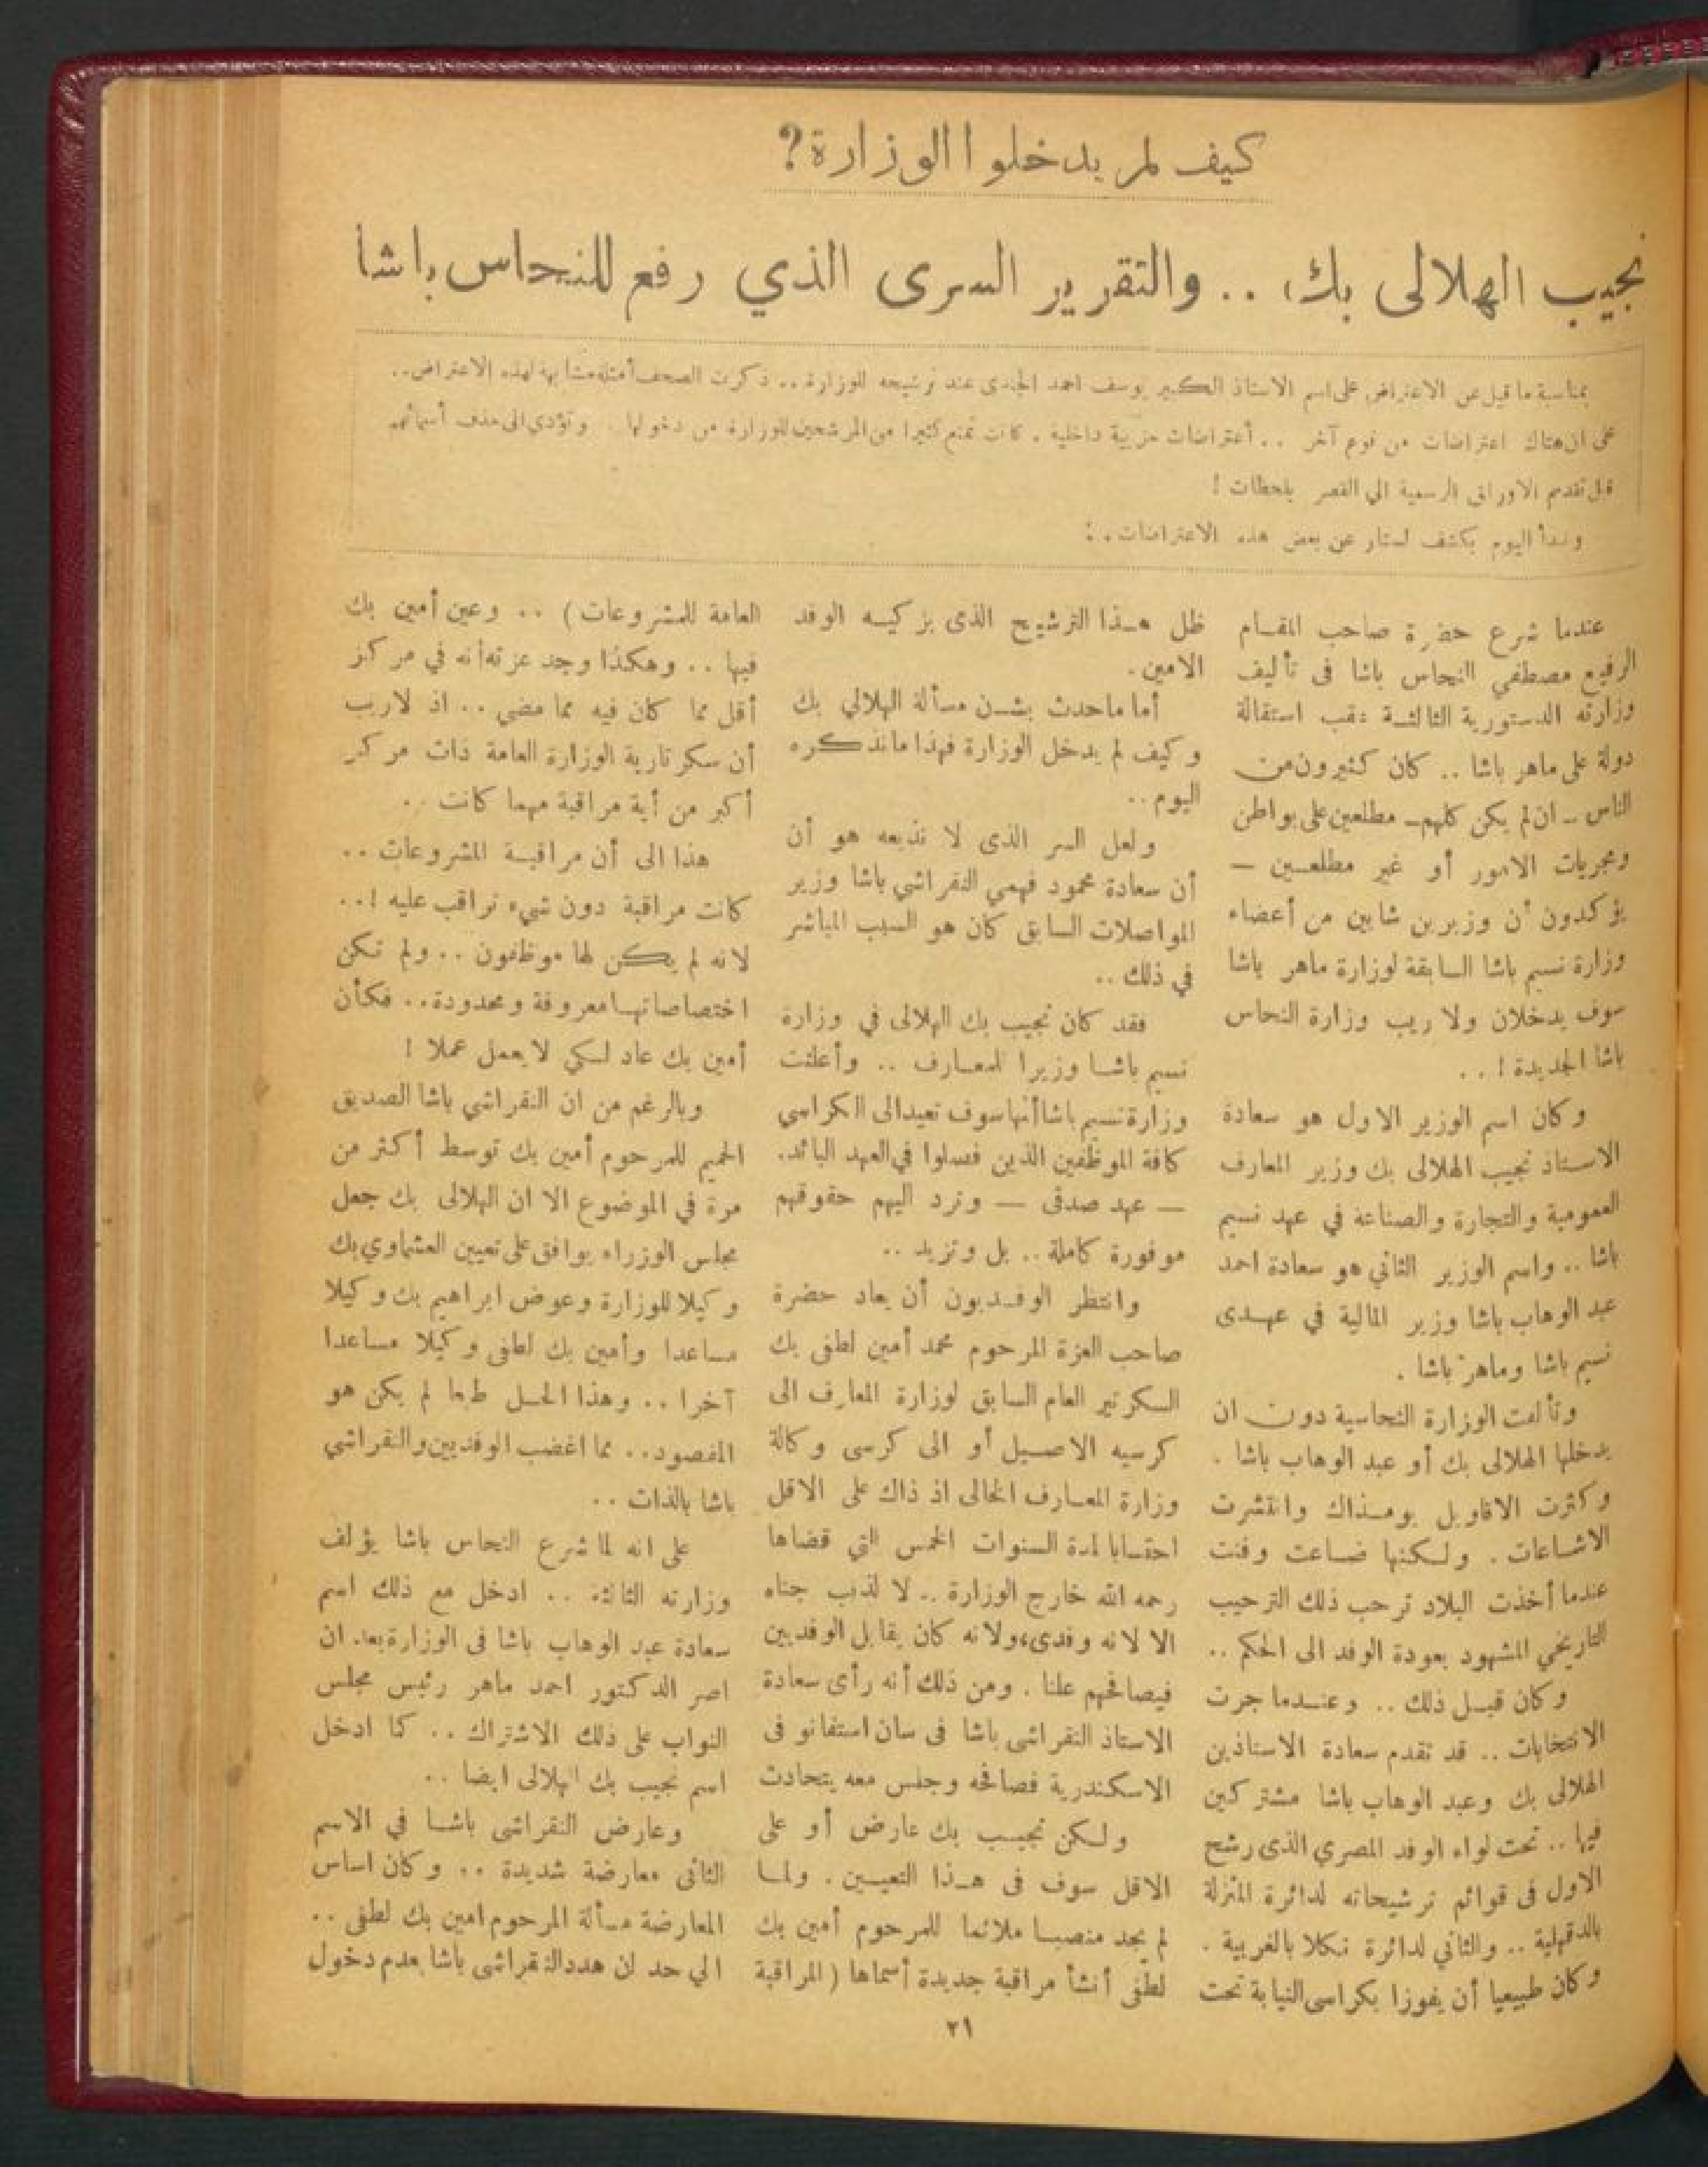 كيف لم يدخلوا الوزارة؟
نجيب الهلالى بك، .. والتقرير السرى الذي رفع للنحاس باشا
بمناسبة ما قيل عن الاعتراض على اسم الاستاذ الكبير يوسف احمد الجندى عند ترشيحه للوزارة .. ذكرت الصحف أمثلة مشابهة لهذه الاعتراض..
على ان هناك اعتراضات من نوع آخر .. أعتراضات حزبية داخلية . كانت تمنع كثيرا من المرشحين للوزارة من دخولها . وتؤدي الى حذف أسمائهم
قبل تقديم الاوراق الرسمية الي القصر بلحظات !
ونبدأ اليوم بكشف الستار عن بعض هذه الاعتراضات . :
عندما شرع حضرة صاحب المقام
الرفيع مصطفي النحاس باشا فى تأليف
وزارته الدستورية الثالثة عقب استقالة
دولة على ماهر باشا .. كان كثيرون من
الناس ـ ان لم يكن كلهم ـ مطلعين على بواطن
ومجريات الامور أو غير مطلعين —
يؤكدون أن وزيرين شابين من أعضاء
وزارة نسيم باشا السابقة لوزارة ماهر باشا
سوف يدخلان ولا ريب وزارة النحاس
باشا الجديدة ! . .
وكان اسم الوزير الاول هو سعادة
الاستاذ نجيب الهلالى بك وزير المعارف
العمومية والتجارة والصناعة في عهد نسيم
باشا .. واسم الوزير الثاني هو سعادة احمد
عبد الوهاب باشا وزير المالية في عهدى
نسيم باشا وماهر باشا .
وتألفت الوزارة النحاسية دون ان
يدخلها الهلالى بك أو عبد الوهاب باشا .
وكثرت الاقاويل يومذاك وانتشرت
الاشاعات . ولكنها ضاعت وفنت
عندما أخذت البلاد ترحب ذلك الترحيب
التاريخي المشهود بعودة الوفد الى الحكم ..
وكان قبل ذلك .. وعندما جرت
الانتخابات .. قد تقدم سعادة الاستاذين
الهلالى بك وعبد الوهاب باشا مشتركين
فيها .. تحت لواء الوفد المصري الذى رشح
الاول فى قوائم ترشيحاته لدائرة المنزلة
بالدقهلية .. والثاني لدائرة نكلا بالغربية .
وكان طبيعيا أن يفوزا بكراسى النيابة تحت
ظل هذا الترشيح الذى يزكيه الوفد
الامين.
أما ماحدث بشن مسألة الهلالي بك
وكيف لم يدخل الوزارة فهذا ما نذكره
اليوم..
ولعل السر الذى لا نذيعه هو أن
أن سعادة محمود فهمي النقراشي باشا وزير
المواصلات السابق كان هو السبب المباشر
في ذلك ..
فقد كان نجيب بك الهلالى في وزارة
نسيم باشا وزيرا للمعارف .. وأعلنت
وزارة نسيم باشا أنها سوف تعيد الى الكراسي
كافة الموظفين الذين فصلوا في العهد البائد.
— عهد صدقى — وترد اليهم حقوقهم
موفورة كاملة .. بل وتزيد ..
وانتظر الوفديون أن يعاد حضرة
صاحب العزة المرحوم محمد أمين لطفى بك
السكرتير العام السابق لوزارة المعارف الى
كرسيه الاصيل أو الى كرسى وكالة
وزارة المعارف الخالى اذ ذاك على الاقل
احتسابا لمدة السنوات الخمس التي قضاها
رحمه الله خارج الوزارة .. لا لذنب جناه
الا لانه وفدى، ولانه كان يقابل الوفديين
فيصافحهم علنا . ومن ذلك أنه رأى سعادة
الاستاذ النقراشى باشا فى سان استفانو فى
الاسكندرية فصافحه وجلس معه يتحادث
ولكن نجيب بك عارض أو على
الاقل سوف فى هذا التعيين . ولما
لم يجد منصبا ملائما للمرحوم أمين بك
لطفى أنشأ مراقبة جديدة أسماها (المراقبة
العامة للمشروعات) .. وعين أمين بك
فيها .. وهكذا وجد عزته أنه في مركز
أقل مما كان فيه مما مضى .. اذ لاريب
أن سكرتارية الوزارة العامة ذات مركز
أكبر من أية مراقبة مهما كانت ..
هذا الى أن مراقبة المشروعات ..
كانت مراقبة دون شيء تراقب عليه !..
لانه لم يكن لها موظفون .. ولم تكن
اختصاصاتها معروفة ومحدودة.. فكأن
أمين بك عاد لكي لا يعمل عملا !
وبالرغم من ان النقراشي باشا الصديق
الحميم للمرحوم أمين بك توسط أكثر من
مرة في الموضوع الا ان الهلالى بك جعل
مجلس الوزراء يوافق على تعيين العشماوي بك
وكيلا للوزارة وعوض ابراهيم بك وكيلا
مساعدا وأمين بك لطفى وكيلا مساعدا
آخرا .. وهذا الحل طبعا لم يكن هو
المقصود.. مما اغضب الوفديين والنقراشي
باشا بالذات ..
على انه لما شرع النحاس باشا يؤلف
وزارته الثالثة .. ادخل مع ذلك اسم
سعادة عبد الوهاب باشا فى الوزارة بعد ان
اصر الدكتور احمد ماهر رئيس مجلس
النواب على ذلك الاشتراك .. كما ادخل
اسم نجيب بك الهلالى ايضا ..
وعارض النقراشى باشا في الاسم
الثانى معارضة شديدة .. وكان اساس
المعارضة مسألة المرحوم امين بك لطفى ..
الي حد ان هدد النقراشى باشا بعدم دخول
٢١